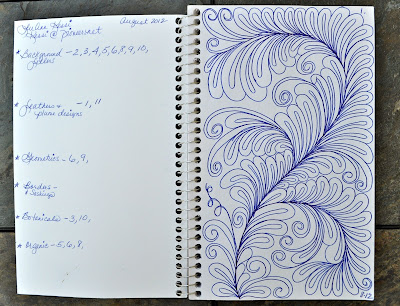 August 2012
@
* Background - 2, 3, 4, 5, 6, 8, 9, 10,
fillers
* Feathers & - 1, 11
plume designs
* Geometrics - 6, 9,
* Borders -
& Sashings
* Botanicals - 3, 10,
* Organic - 5, 6, 8,
1
8-12